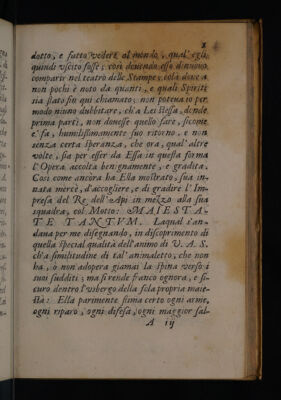 dotto, e fatto vedere al mondo, qual'egli
quindi vscito fosse; così douendo esso di nuouo
comparir nel teatro delle Stampe, colà doue a
non pochi è noto da quanti, e quali Spiriti
sia stato fin quì chiamato; non poteua io per
modo niuno dubbitare, ch'a Lei stessa, donde
prima partì, non douesse quello fare, sicome
e' fa, humilissimamente suo ritorno, e non
senza certa speranza, che ora, qual'altre
volte, sia per esser da Essa in questa forma
l'Opera accolta benignamente, e gradita.
Così come ancora ha Ella mostrato, sua in-
nata mercè, d'accogliere, e di gradire l'Im-
presa del Re dell'Api in mezzo alla sua
squadra, col Motto: MAIESTA-
TE TANTVM. Laqual s'an-
daua per me disegnando, in discoprimento di
quella special qualità dell'animo di V. A. S.
ch'a similitudine di tal'animaletto, che non
ha, o non adopera giamai la spina verso i
suoi sudditi; ma si rende franco ognora, e si-
curo dentro l'vsbergo della sola propria maie-
stà: Ella parimente stima certo ogni arme,
ogni riparo, ogni difesa, ogni maggior sal-
A ij